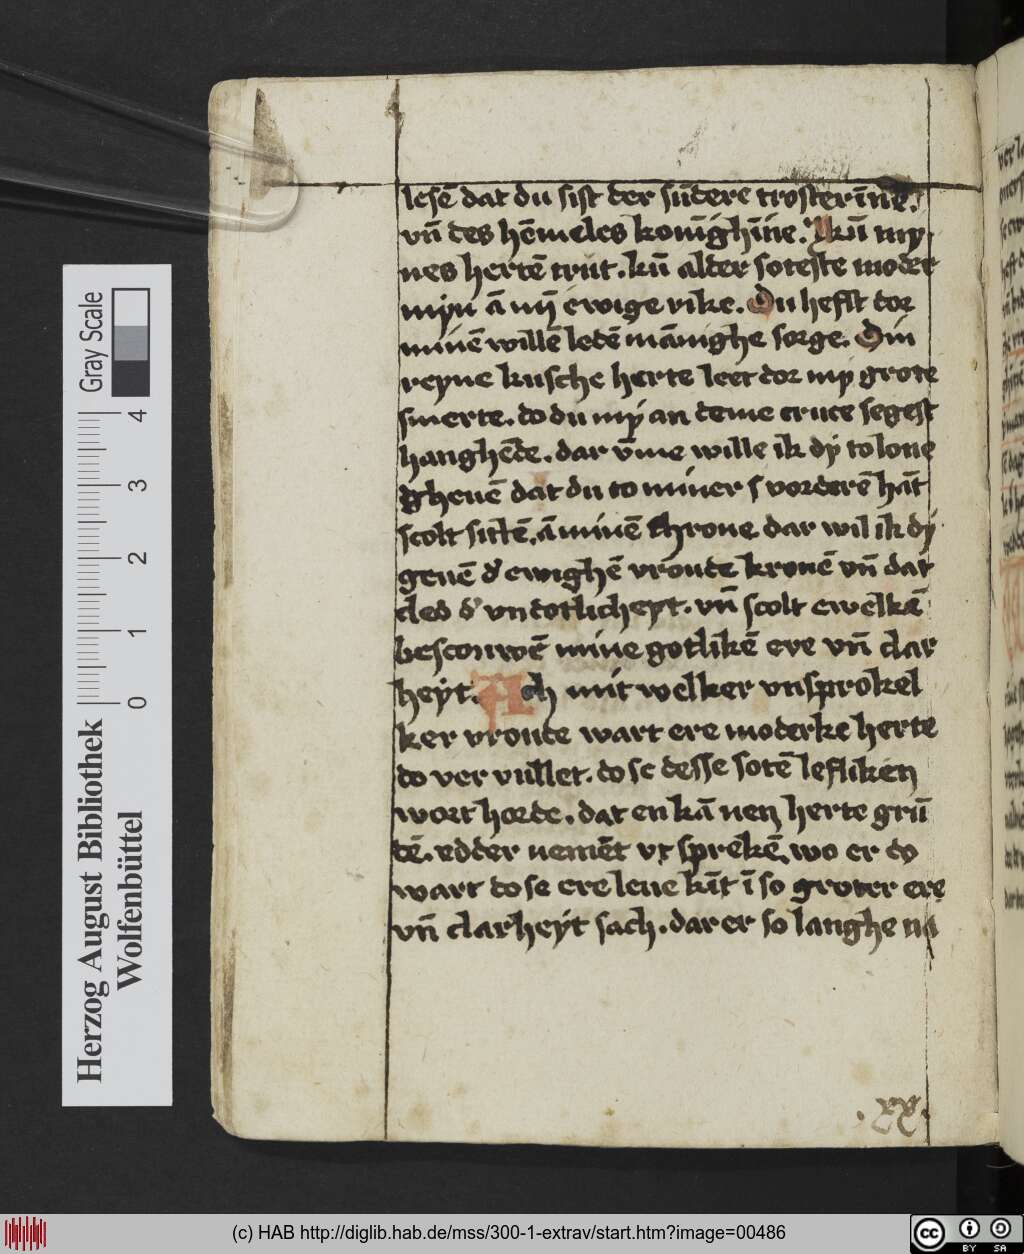 lesē dat du sist der sūdere trosterīne.
vn̄ des hēmeles konīghīne. kū my
nes hertē trut. kū alder soteste moder
myn ā mӱ ewige rike. Du hefst dor
minē willē ledē mānighe sorge. Din
reyne kusche herte leet dor mӱ grote
smerte. do du mӱ an deme cruce segest
hanghēde. dar v̄me wille ik dӱ to lone
gheuē dat du to miner vorderē hāt
scolt sittē. ā minē throne dar wil ik dӱ
geuē d' ewighē vroude kronē vn̄ dat
cled d' vndotlicheyt. vn̄ scolt ewelkā
bescouwē mine gotlikē ere vn̄ clar
heӱt. Ach mit welker vnsprokel
ker vroude wart ere moderke herte
do ver vullet. do se desse sotē lefliken
wort horde. dat en kā nen herte grū
dē. edder nemēt vt sprekē. wo er do
wart do se ere leue kīt ī so groter ere
vn̄ clarheӱt sach. dar er so langhe na
.xx.
Gray Scale
0 1 2 3 4
Herzog August Bibliothek
Wolfenbüttel
(c) HAB http://diglib.hab.de/mss/300-1-extrav/start.htm?image=00486
cc BY SA